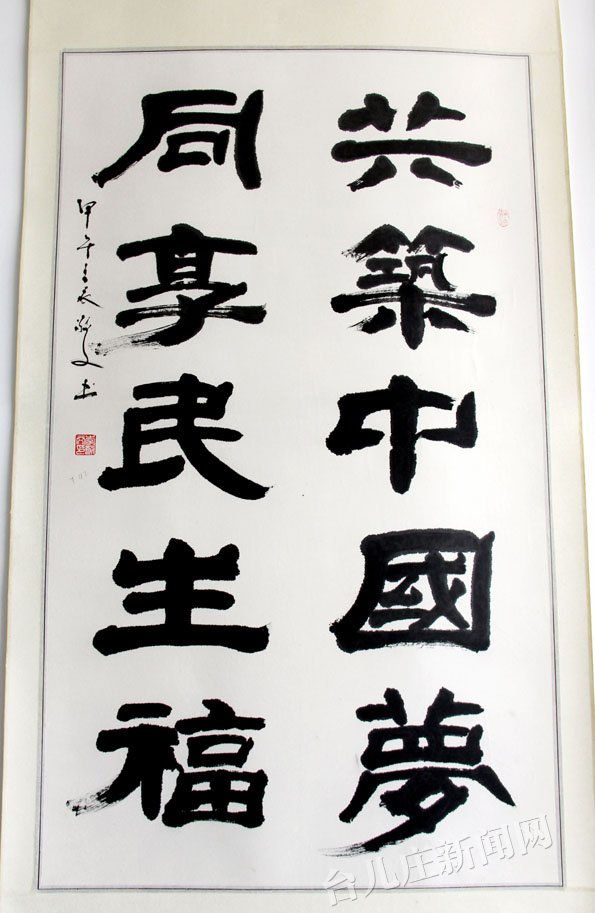 共築中國夢
同享民生福
甲午
书
台儿庄新闻网